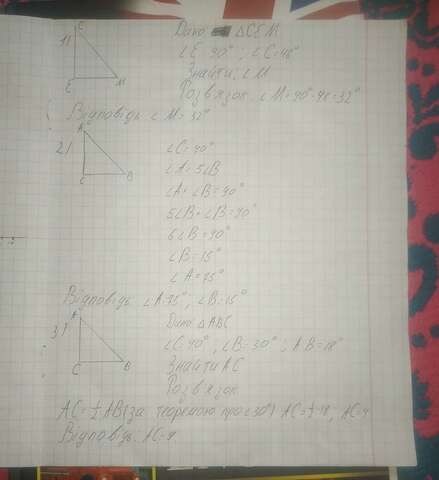 1) E
Дано △CEM
∠E 90°, ∠C=48°
Знайти, ∠M
E M
Розв'язок ∠M=90°-48=32°
Відповідь ∠M=32°
A
2)
∠C=90°
∠A=5∠B
C B
∠A+∠B=90°
5∠B+∠B=90°
6∠B=90°
∠B=15°
∠A=75°
Відповідь ∠A=75°, ∠B=15°
A
3)
Дано △ABC
∠C 90°, ∠B=30°; AB=18°
C B
Знайти AC
Розв'язок
AC=½AB(за теоремою про ∠30°) AC=½·18, AC=9
Відповідь AC=9